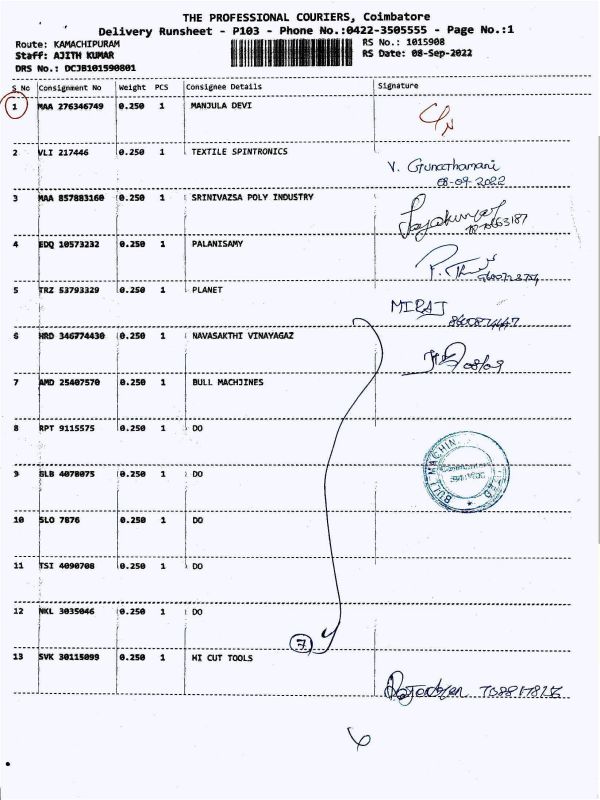 THE PROFESSIONAL COURIERS, Coimbatore
Delivery Runsheet - P103 - Phone No.:0422-3505555 - Page No.:1
Route: KAMACHIPURAM RS No.: 1015908
Staff: AJITH KUMAR RS Date: 08-Sep-2022
DRS No.: DCJB101590801
S No Consignment No Weight PCS Consignee Details Signature
1 MAA 276346749 0.250 1 MANJULA DEVI
2 VLI 217446 0.250 1 TEXTILE SPINTRONICS
V. Gunathamani
08-09-2022
3 MAA 857883160 0.250 1 SRINIVAZSA POLY INDUSTRY
4 EDQ 10573232 0.250 1 PALANISAMY
5 TRZ 53793329 0.250 1 PLANET
MIRAJ
6 HRD 346774430 0.250 1 NAVASAKTHI VINAYAGAZ
08/09
7 AMD 25407570 0.250 1 BULL MACHJINES
8 RPT 9115575 0.250 1 DO
BULL MACHIN
9 GLB 4078075 0.250 1 DO
10 SLO 7876 0.250 1 DO
11 TSI 4090708 0.250 1 DO
12 NKL 3035046 0.250 1 DO
7
13 SVK 30115099 0.250 1 HI CUT TOOLS